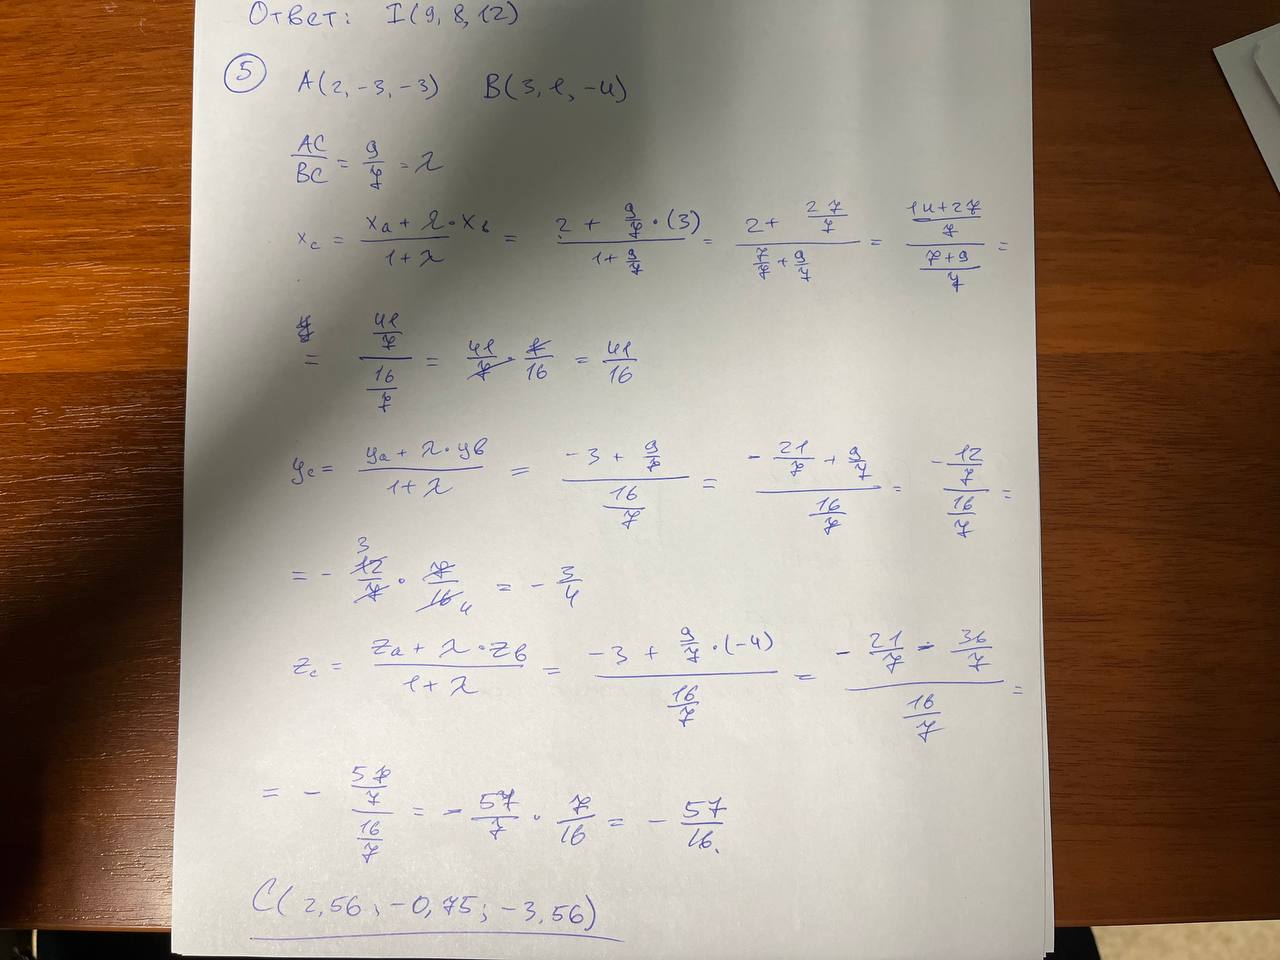 Ответ: I(9, 8, 12)
5 A(2, -3, -3) B(3, 1, -4)
AC/BC = 9/7 = λ
x_c = (x_a + λ·x_b)/(1+λ) = (2 + 9/7·(3))/(1 + 9/7) = (2 + 27/7)/(7/7 + 9/7) = ((14+27)/7)/((7+9)/7) =
= (41/7)/(16/7) = 41/7 · 7/16 = 41/16
y_c = (y_a + λ·y_b)/(1+λ) = (-3 + 9/7)/(16/7) = (-21/7 + 9/7)/(16/7) = (-12/7)/(16/7) =
= - 12/7 · 7/16 = - 3/4
z_c = (z_a + λ·z_b)/(1+λ) = (-3 + 9/7·(-4))/(16/7) = (-21/7 - 36/7)/(16/7) =
= - (57/7)/(16/7) = - 57/7 · 7/16 = - 57/16.
C(2,56; -0,75; -3,56)